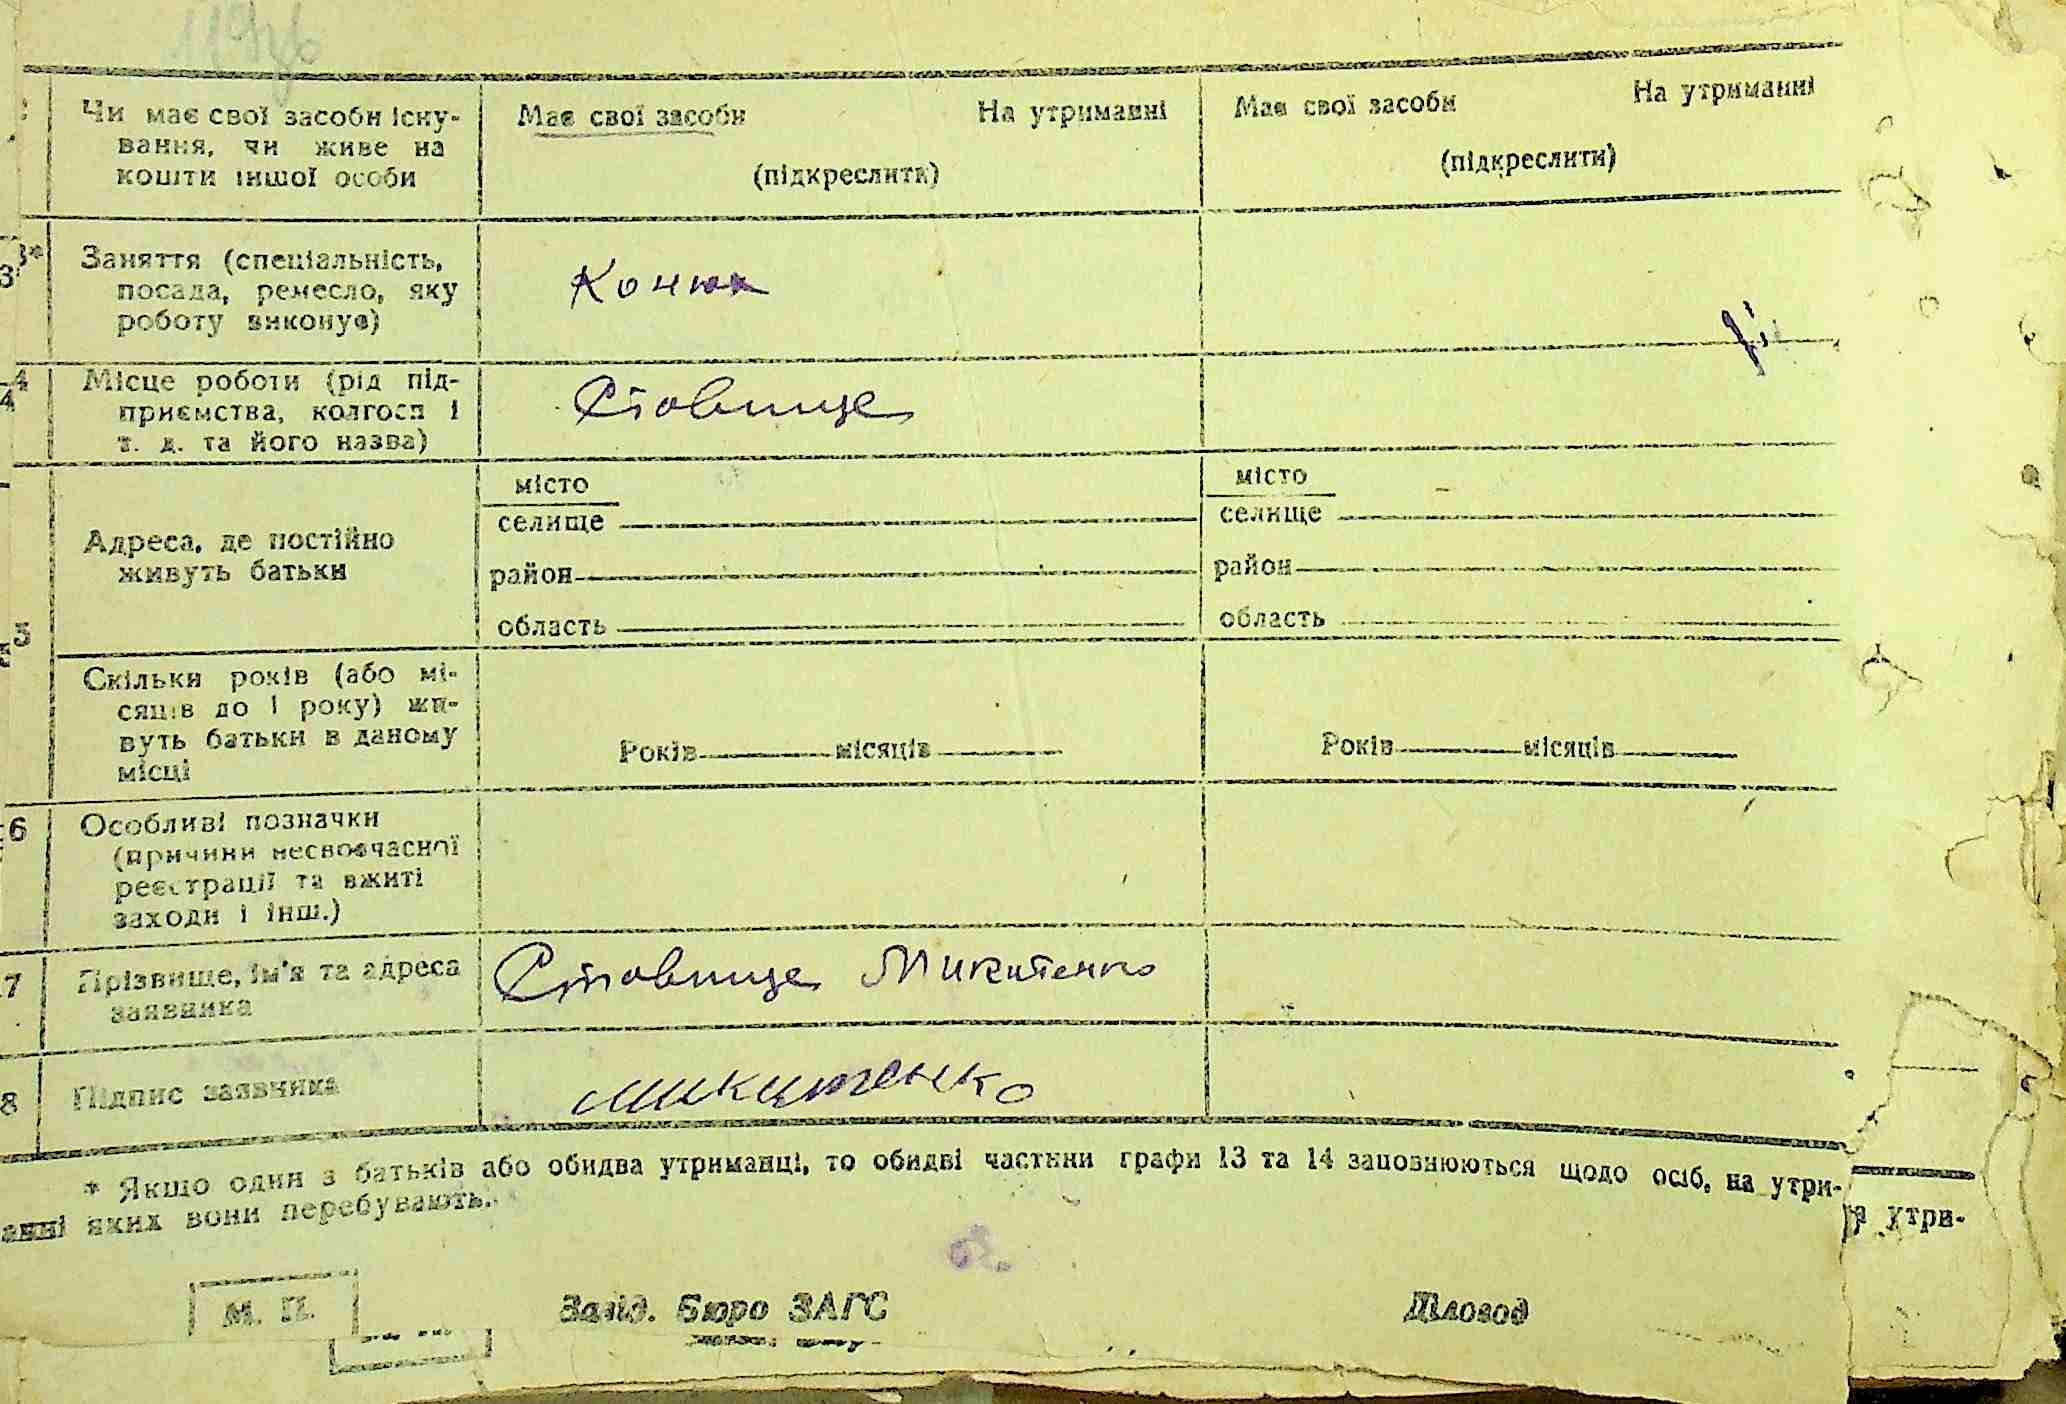 Чи має свої засоби існу-
вання, чи живе на
кошти іншої особи
Має свої засоби На утриманні
(підкреслити)
Має свої засоби На утриманні
(підкреслити)
3*
Заняття (спеціальність,
посада, ремесло, яку
роботу виконує)
Конюх
4
Місце роботи (рід під-
приємства, колгосп і
т. д. та його назва)
Ставище
5
Адреса, де постійно
живуть батьки
місто
селище
район
область
місто
селище
район
область
Скільки років (або мі-
сяців до 1 року) жи-
вуть батьки в даному
місці
Років місяців
Років місяців
6
Особливі позначки
(причини несвоєчасної
реєстрації та вжиті
заходи і інш.)
7
Прізвище, ім'я та адреса
заявника
Ставище Микитенко
8
Підпис заявника
Микитенко
* Якщо один з батьків або обидва утриманці, то обидві частини графи 13 та 14 заповнюються щодо осіб, на утри-
анні яких вони перебувають.
утри-
М. П.
Завід. Бюро ЗАГС
Діловод